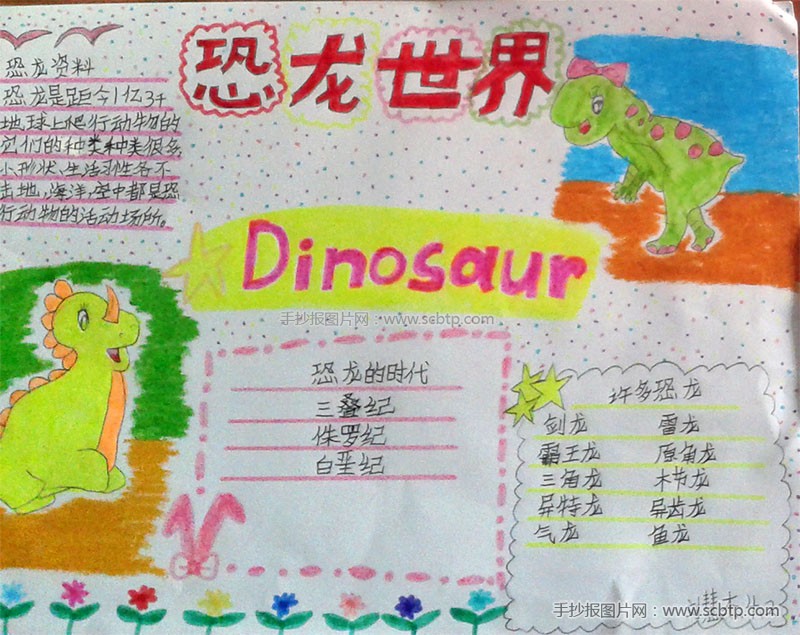 恐龙世界
恐龙资料
恐龙是距今1亿3千
地球上爬行动物的
它们的种类种类很多
小形状,生活习性各不
击地,海洋,空中都是恐
行动物的活动场所。
Dinosaur
手抄报图片网：www.scbtp.com
恐龙的时代
三叠纪
侏罗纪
白垩纪
许多恐龙
剑龙 雷龙
霸王龙 原角龙
三角龙 木节龙
异特龙 异齿龙
气龙 鱼龙
手抄报图片网：www.scbtp.com